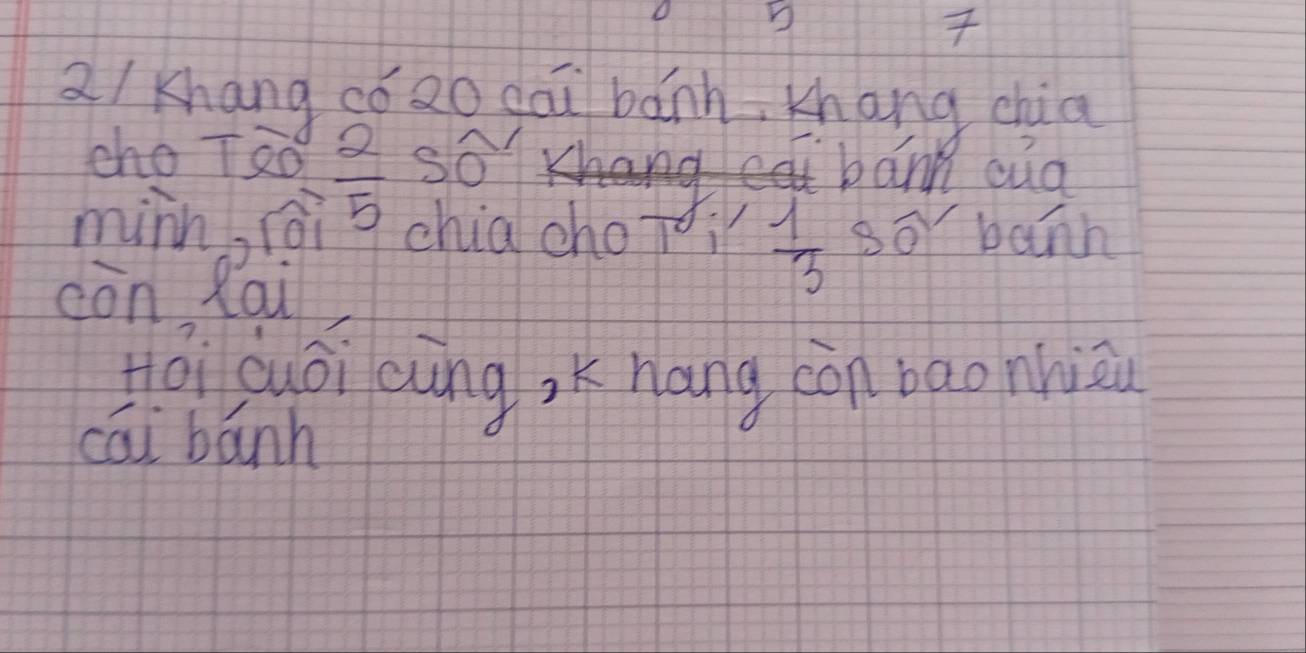 5 7
2/ Khang có 20 cái bánh. Khang chia
cho Tèo 2/5 số bánh của
mình, rồi chia cho Tí 1/3 số bánh
còn lại
Hỏi cuối cùng, Khang còn bao nhiêu
cái bánh